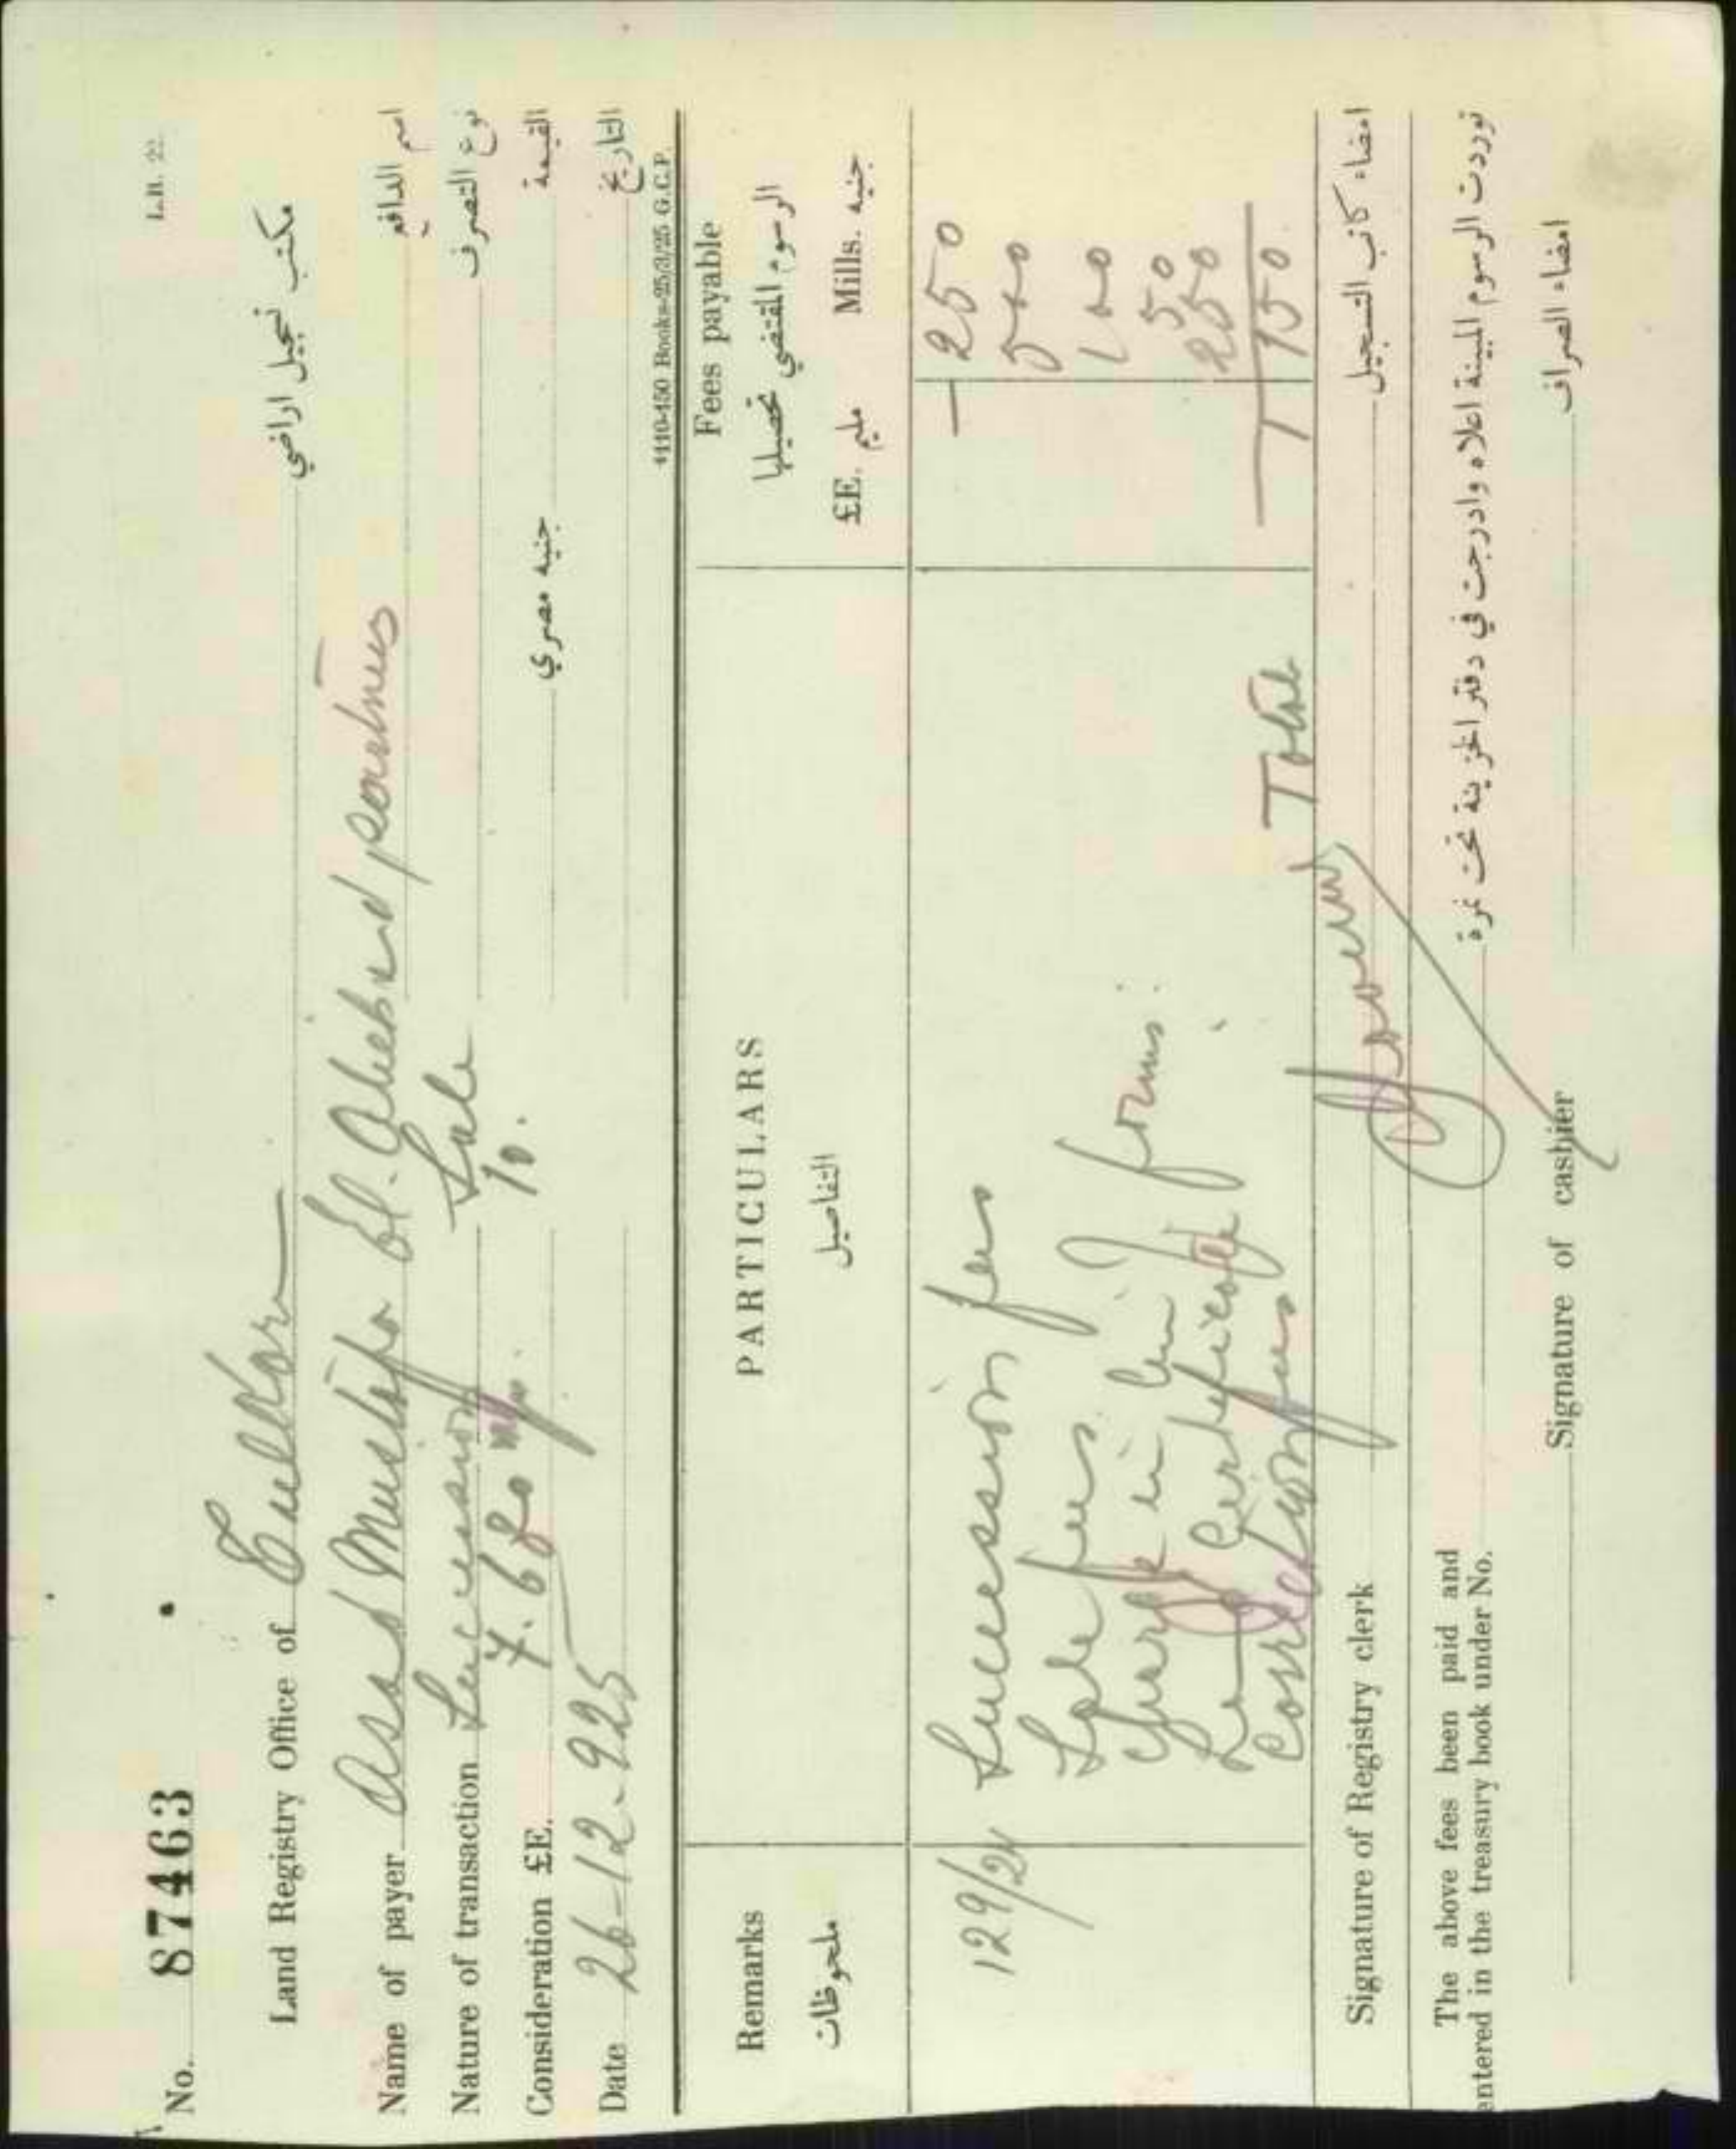 L.R. 22.
No. 87463
Land Registry Office of Tulkarm مكتب تسجيل اراضي
Name of payer Asad Mustafa El. and partners اسم الدافع
Nature of transaction Succession Sale نوع التصرف
Consideration £E. 7.680 10. جنيه مصري القيمة
Date 26-12-925 التاريخ
4110-450 Books-25/3/25 G.C.P.
Remarks PARTICULARS Fees payable
ملحوظات التفاصيل الرسوم المقتضي تحصيلها
£E. مليم Mills. جنيه
129/24 Succession fees — 250
Sale fees 500
in 100
Certificate forms: 50
fees 250
Total 1 150
Signature of Registry clerk امضاء كاتب التسجيل
The above fees been paid and
entered in the treasury book under No. توردت الرسوم المبينة اعلاه وادرجت في دفتر الخزينة تحت نمرة
Signature of cashier امضاء الصراف